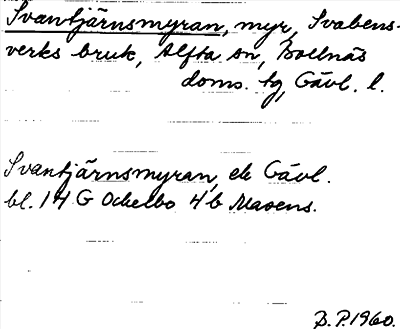 Svantjärnsmyran, myr, Svabens-
verks bruk, Alfta sn, Bollnäs
doms. tg, Gävl. l.
Svantjärnsmyran, ek Gävl.
bl. 14 G Ockelbo 4 b Masens.
B.P. 1960.